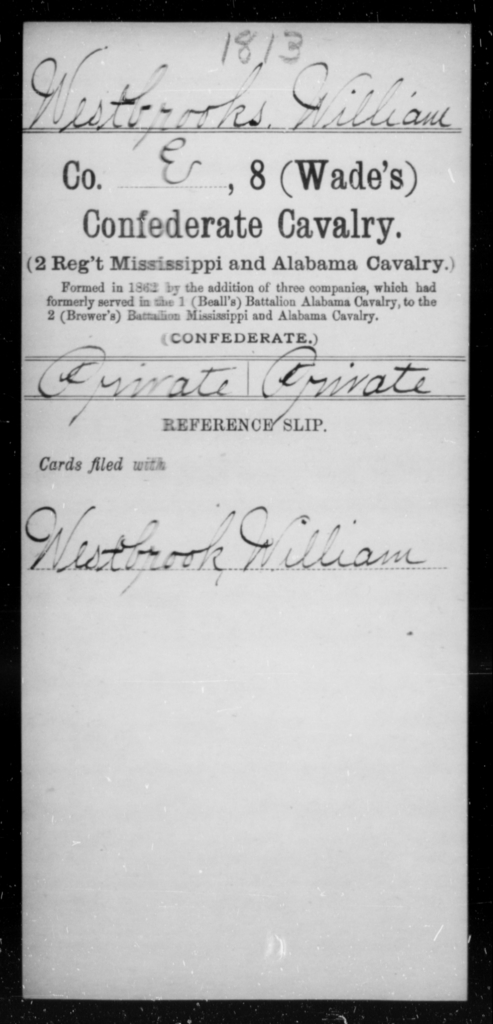 1813
Westbrooks, William
Co. E, 8 (Wade's)
Confederate Cavalry.
(2 Reg't Mississippi and Alabama Cavalry.)
Formed in 1862 by the addition of three companies, which had
formerly served in the 1 (Beall's) Battalion Alabama Cavalry, to the
2 (Brewer's) Battalion Mississippi and Alabama Cavalry.
(CONFEDERATE.)
Private | Private
REFERENCE SLIP.
Cards filed with
Westbrook, William